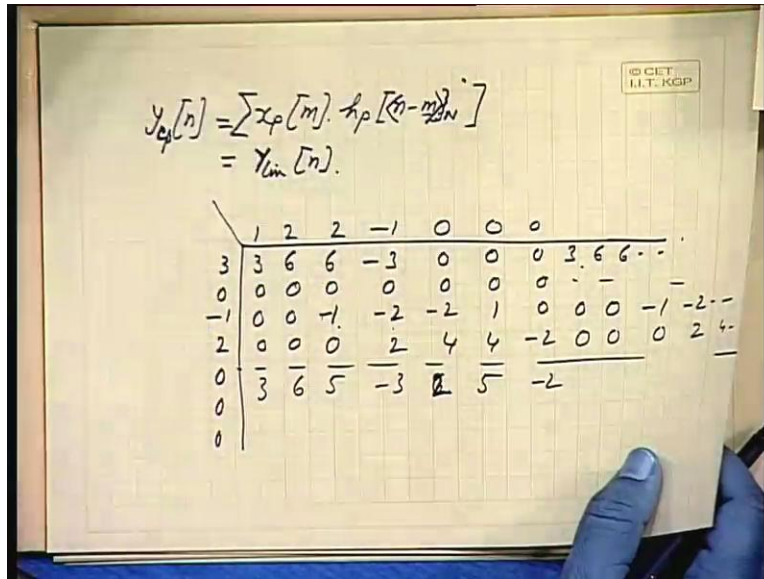 © CET
I.I.T. KGP
y_cp[n] = Σ x_p[m] · h_p[⟨n-m⟩_N]
= Y_lin[n].
1 2 2 -1 0 0 0
3 3 6 6 -3 0 0 0 3 6 6 - -
0 0 0 0 0 0 0 0 - - -
-1 0 0 -1 -2 -2 1 0 0 0 -1 -2 - -
2 0 0 0 2 4 4 -2 0 0 0 2 4 -
0 3 6 5 -3 2 5 -2
0
0